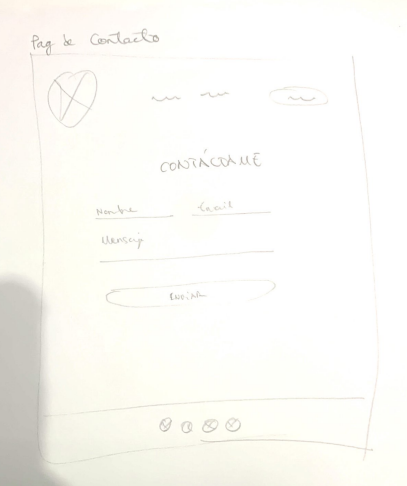 Pag de Contacto
CONTÁCTAME
Nombre Email
Mensaje
ENVIAR